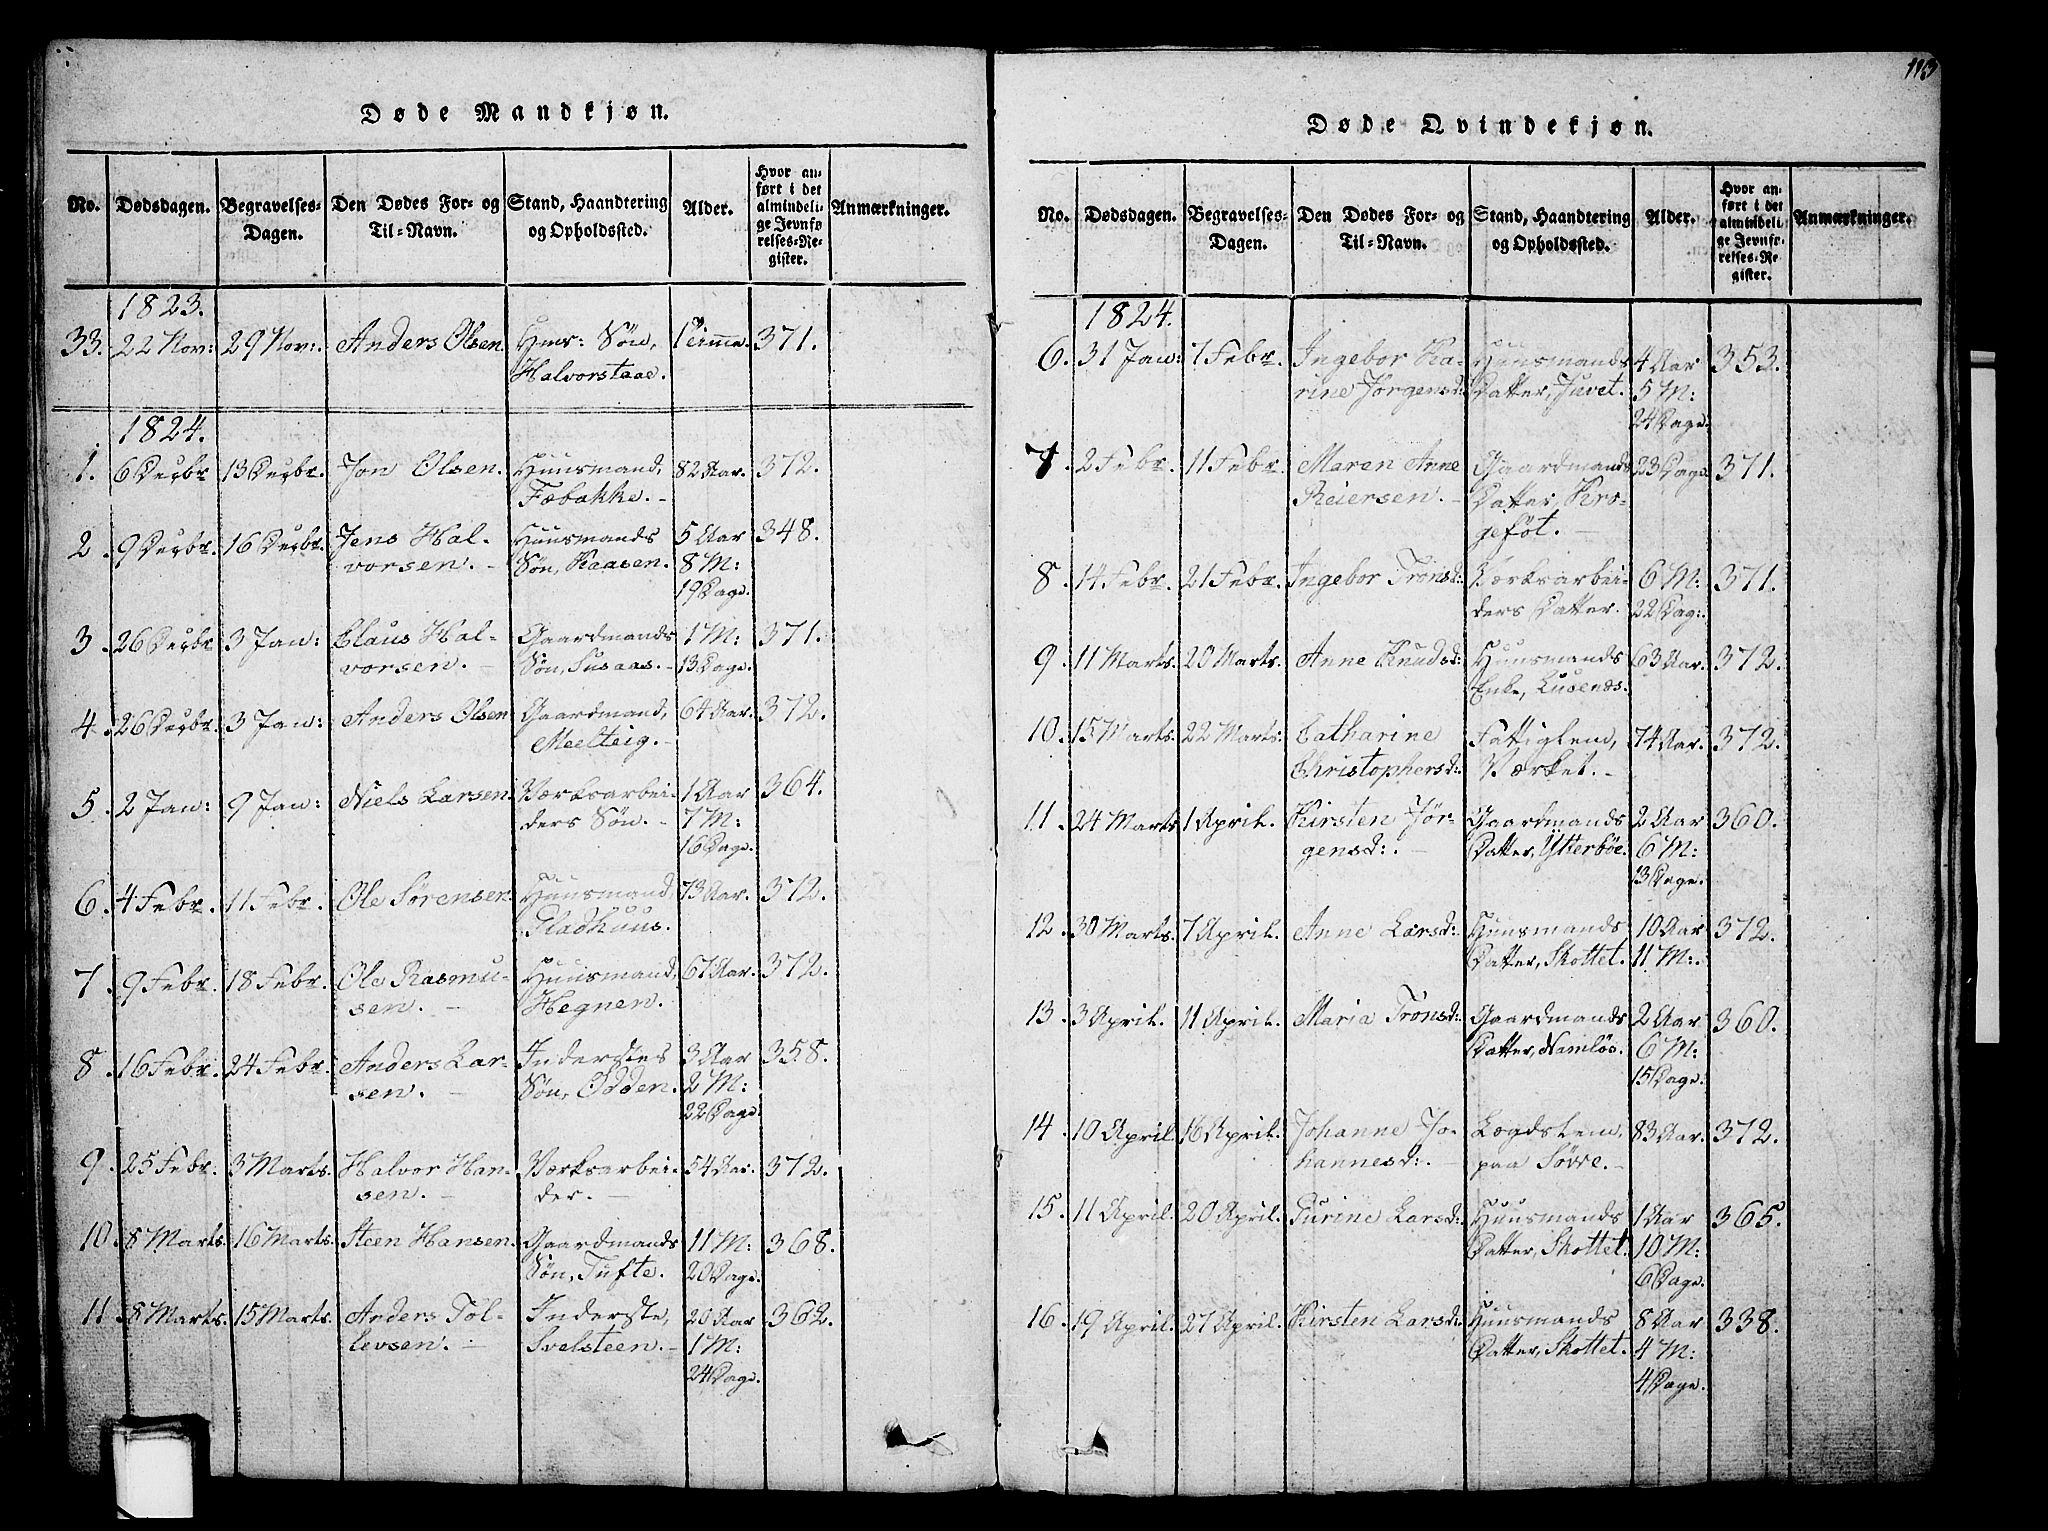 113
Døde Mandkjøn.
No. Dødsdagen. Begravelses-Dagen. Den Dødes For- og Til-Navn. Stand, Haandtering og Opholdssted. Alder. Hvor anført i det almindelige Jevnførelses-Register. Anmærkninger.
1823.
33. 22 Nov: 29 Nov: Anders Olsen Hms: Søn, 1 Time. 371.
Halvorstaae.
1824.
1. 6 Decbr 13 Decbr. Jon Olsen. Huusmand, 82 Aar. 372.
Fæbakke.
2. 9 Decbr. 16 Decbr. Jens Hal- Huusmands 5 Aar 348.
vorsen. Søn, Kaasen. 8 M:
19 Dage.
3. 26 Decbr 3 Jan: Claus Hal- Gaardmands 1 M: 371.
vorsen. Søn, Susaas. 13 Dage.
4. 26 Decbr. 3 Jan: Anders Olsen Gaardmand, 64 Aar. 372.
Meelteig.
5. 2 Jan: 9 Jan: Niels Larsen. Værksarbei- 1 Aar 364.
ders Søn. 7 M:
16 Dage.
6. 4 Febr. 11 Febr. Ole Sørensen Huusmand 73 Aar. 372.
Gladhuus.
7. 9 Febr. 18 Febr. Ole Rasmu- Huusmand, 67 Aar. 372.
sen. Hegnen.
8. 16 Febr. 24 Febr. Anders Lar- Inderstes 3 Aar 358.
sen. Søn, Odden. 2 M:
22 Dage.
9. 25 Febr. 3 Marts. Halvor Han- Værksarbei- 54 Aar. 372.
sen. der.
10. 8 Marts. 16 Marts. Steen Hansen. Gaardmands 11 M: 368.
Søn, Tufte. 20 Dage.
11. 8 Marts. 15 Marts. Anders Tol- Inderste, 20 Aar 362.
levsen. Svelsteen. 1 M:
24 Dage.
Døde Qvindekjøn.
No. Dødsdagen. Begravelses-Dagen. Den Dødes For- og Til-Navn. Stand, Haandtering og Opholdssted. Alder. Hvor anført i det almindelige Jevnførelses-Register. Anmærkninger.
1824.
6. 31 Jan: 7 Febr. Ingebor Ka- Huusmands 4 Aar 353.
rine Jørgensd: Datter, Juvet. 5 M:
24 Dage.
7. 2 Febr. 11 Febr. Maren Anne Gaardmands 23 Dage. 371.
Reiersen. Datter, Kro-
geføt.
8. 14 Febr. 21 Febr. Ingebor Tronsd: Værksarbei- 6 M: 371.
ders Datter. 22 Dag:
9. 11 Marts. 20 Marts. Anne Knudsd: Huusmands 63 Aar. 372.
Enke,
10. 15 Marts. 22 Marts. Catharine Fattiglem, 74 Aar. 372.
Christophersd: Værket.
11. 24 Marts 1 April. Kirsten Jør- Gaardmands 2 Aar 360.
gensd: Datter, Ytterbøe. 6 M:
13 Dage.
12. 30 Marts. 7 April. Anne Larsd: Huusmands 10 Aar 372.
Datter, Skottet. 11 M:
13. 3 April. 11 April. Maria Tronsd: Gaardmands 2 Aar 360.
Datter, Namløs. 6 M:
15 Dage.
14. 10 April. 16 April. Johanne Jo- Lægdslem, 83 Aar. 372.
hannesd: paa Søvre.
15. 11 April. 20 April. Turine Larsd: Huusmands 1 Aar 365.
Datter, Skottet. 10 M:
6 Dage.
16. 19 April. 27 April. Kirsten Larsd: Huusmands 8 Aar 338.
Datter, Skottet. 4 M:
4 Dage.